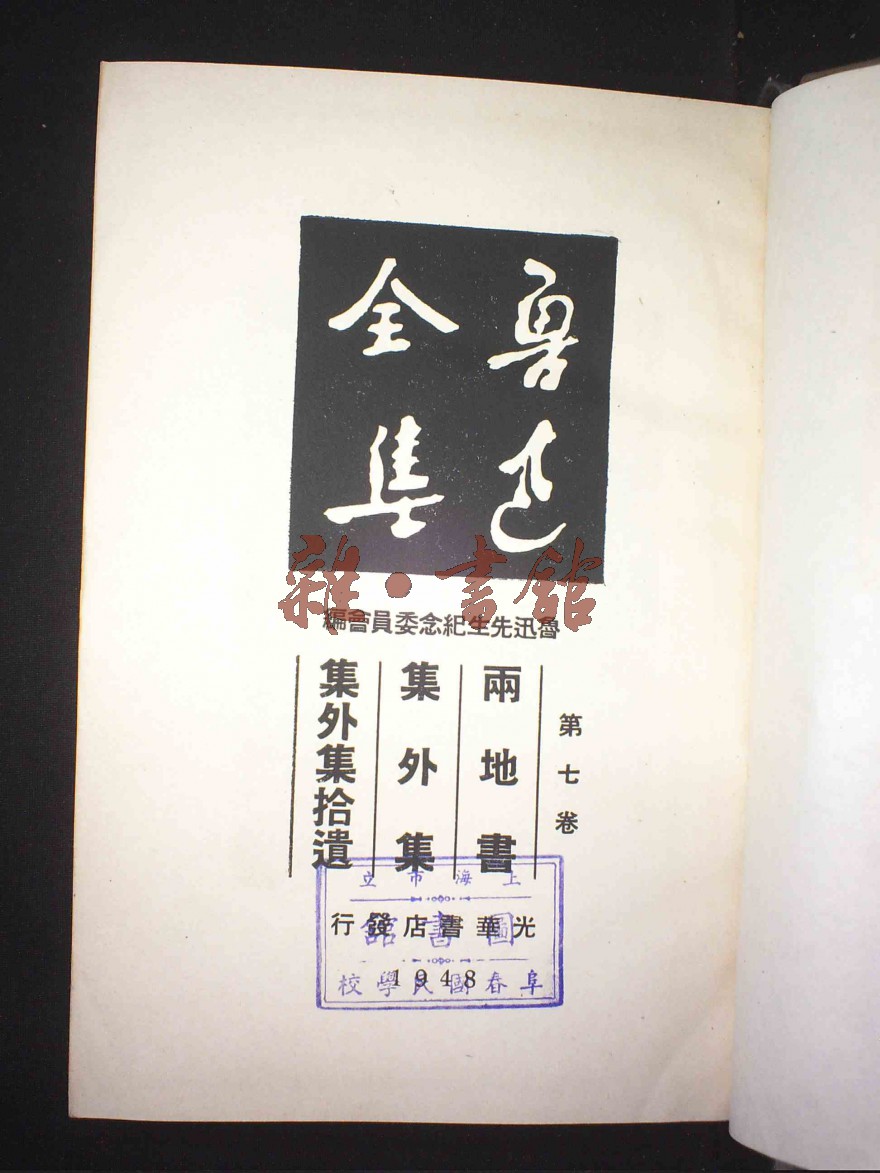 魯迅
全集
雜·書館
魯迅先生紀念委員會編
第七卷
兩地書
集外集
集外集拾遺
光華書店發行
1948
上海市立
圖書館
阜春國民學校